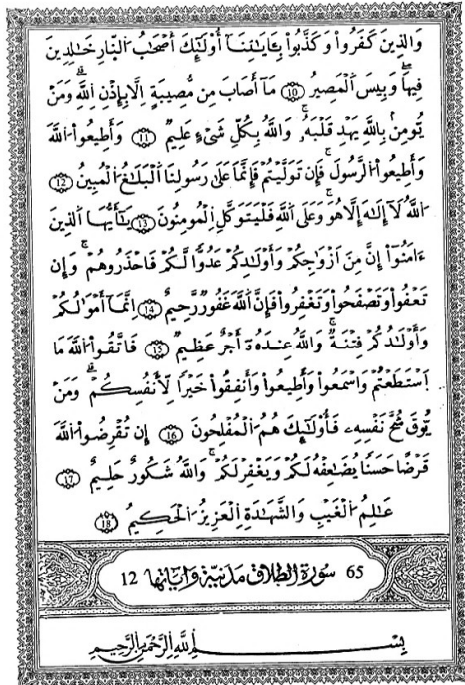 وَالذِينَ كَفَرُوا وَكَذَّبُوا بِـَٔايَـٰتِنَآ أُوْلَـٰٓئِكَ أَصْحَـٰبُ النَّارِ خَـٰلِدِينَ
فِيهَا وَبِيسَ اَلْمَصِيرُ 10 مَآ أَصَابَ مِن مُّصِيبَةٍ اِلَّا بِإِذْنِ اِللَّهِ وَمَنْ
يُّومِنۢ بِاللَّهِ يَهْدِ قَلْبَهُۥ وَاللَّهُ بِكُلِّ شَىْءٍ عَلِيمٌ 11 وَأَطِيعُوا اللَّهَ
وَأَطِيعُوا الرَّسُولَ فَإِن تَوَلَّيْتُمْ فَإِنَّمَا عَلَىٰ رَسُولِنَا اَلْبَلَـٰغُ الْمُبِينُ 12
اَللَّهُ لَآ إِلَـٰهَ إِلَّا هُوَ وَعَلَى اَللَّهِ فَلْيَتَوَكَّلِ اِلْمُومِنُونَ 13 يَـٰٓأَيُّهَا اَلذِينَ
ءَامَنُوٓا إِنَّ مِنَ اَزْوَٰجِكُمْ وَأَوْلَـٰدِكُمْ عَدُوًّا لَّكُمْ فَاحْذَرُوهُمْ وَإِن
تَعْفُوا وَتَصْفَحُوا وَتَغْفِرُوا فَإِنَّ اَللَّهَ غَفُورٌ رَّحِيمٌ 14 اِنَّمَآ أَمْوَٰلُكُمْ
وَأَوْلَـٰدُكُمْ فِتْنَةٌ وَاللَّهُ عِندَهُۥٓ أَجْرٌ عَظِيمٌ 15 فَاتَّقُوا اللَّهَ مَا
اَسْتَطَعْتُمْ وَاسْمَعُوا وَأَطِيعُوا وَأَنفِقُوا خَيْرًا لِّأَنفُسِكُمْ وَمَنْ
يُّوقَ شُحَّ نَفْسِهِۦ فَأُوْلَـٰٓئِكَ هُمُ اَلْمُفْلِحُونَ 16 إِن تُقْرِضُوا اللَّهَ
قَرْضًا حَسَنًا يُضَـٰعِفْهُ لَكُمْ وَيَغْفِرْ لَكُمْ وَاللَّهُ شَكُورٌ حَلِيمٌ 17
عَـٰلِمُ اَلْغَيْبِ وَالشَّهَـٰدَةِ اِلْعَزِيزُ اَلْحَكِيمُ 18
65 سورة الطلاق مدنية وآياتها 12
بِسْمِ اِللَّهِ اِلرَّحْمَـٰنِ اِلرَّحِيمِ